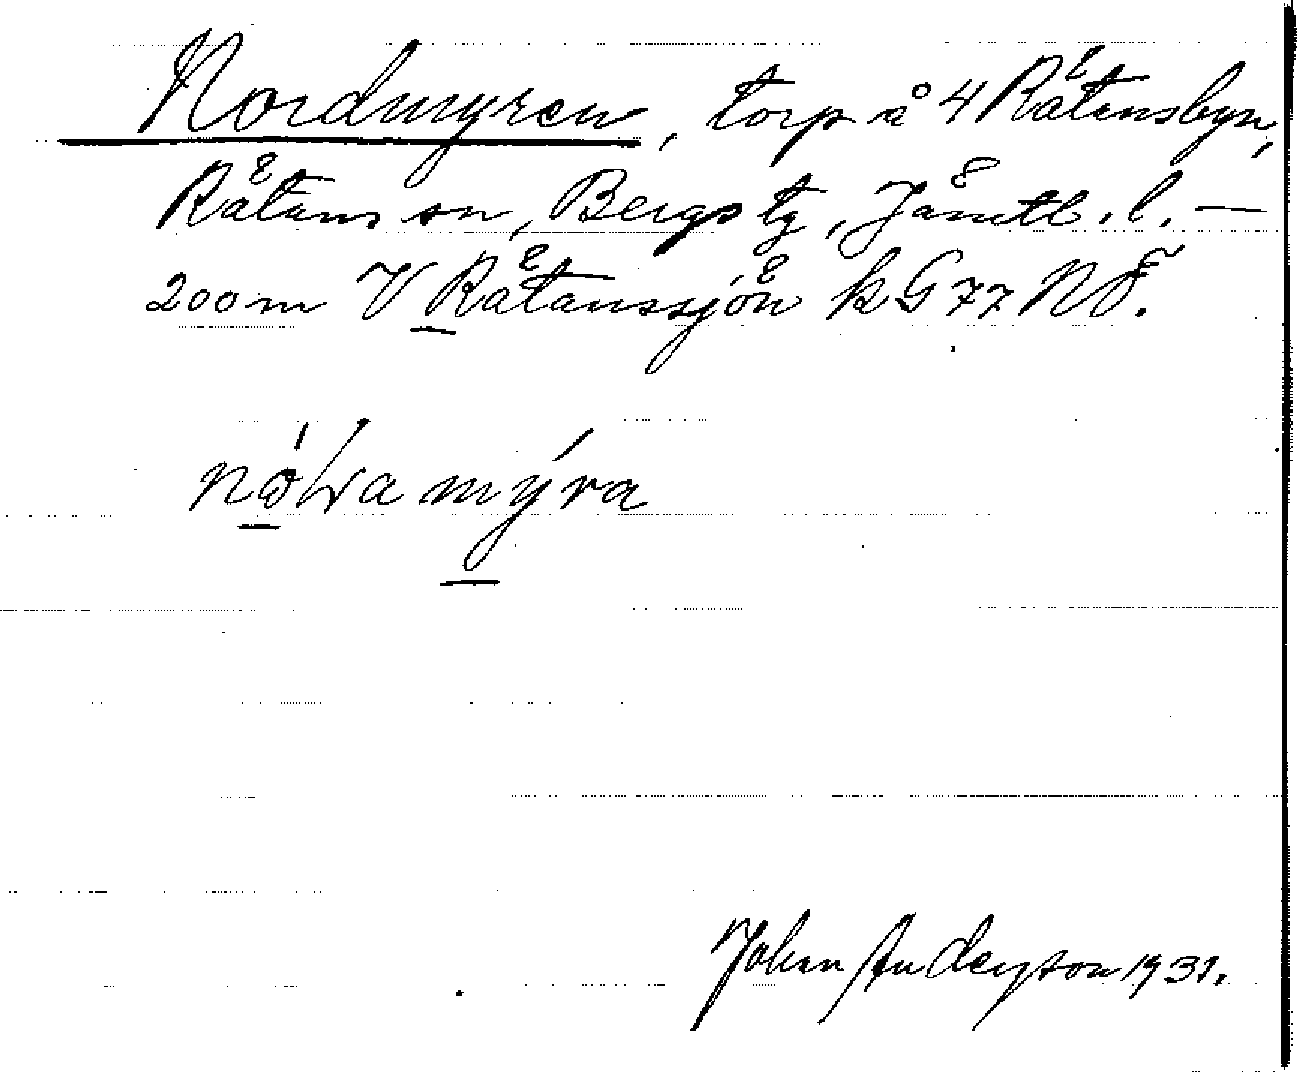 Nordmyren, torp å 4 Rätansbyn,
Rätans sn, Bergs tg, Jämtl. l. —
200 m V Rätanssjön k G 77 NÖ.
mýra
Johan Anderson 1931.